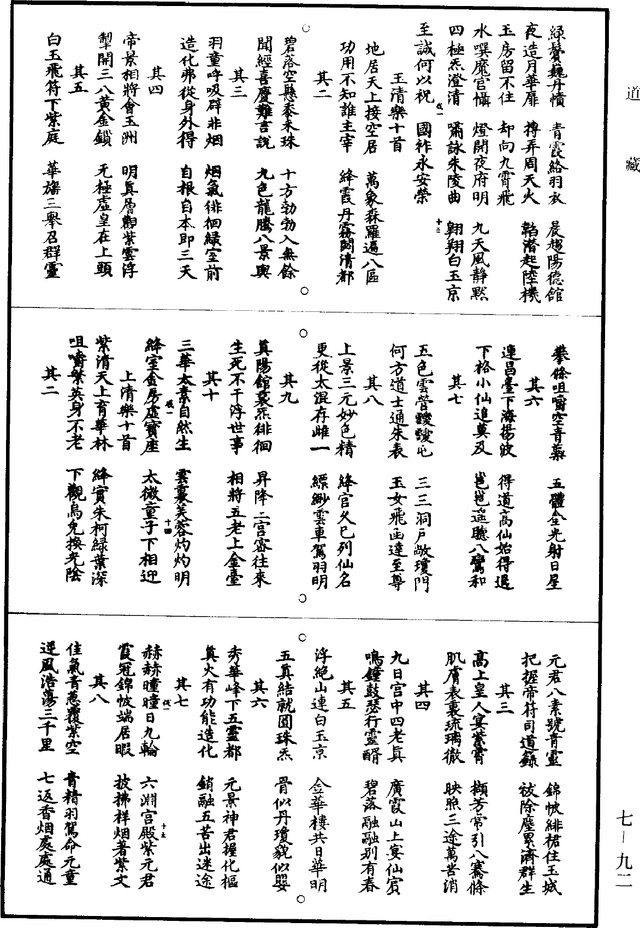 道藏
綠鬢巍丹幘　青霞絡羽衣　晨趍陽德館
夜造月華扉　摶弄周天火　韜潛起陸機
玉房留不住　却向九霄飛
水噀魔宫懾　燈開夜府明　九天風靜默
四極炁澄清　嘯詠朱陵曲　翱翔白玉京
至誠何以祝　國祚永安榮
玉清樂十首
地居天上接空居　萬象森羅遍八區
功用不知誰主宰　絳霞丹霧闢清都
其二
碧落空懸黍米珠　十方勃勃入無餘
聞經喜慶難言說　九色龍騰八景輿
其三
羽童呼吸辟非烟　烟氣徘徊綠室前
造化弗從身外得　自根自本即三天
其四
帝景相將會玉洲　明真層觀紫雲浮
掣開三八黄金鎖　無極虛皇在上頭
其五
白玉飛符下紫庭　華旛三舉召群靈
攀條咀嚼空青蘂　五體全光射日星
其六
連昌臺下海揚波　得道高仙始得過
下格小仙追莫及　邕邕遥聽八鸞和
其七
五色雲營靉靆屯　三三洞戶敞瓊門
何方道士通朱表　玉女飛函達至尊
其八
上景三元妙色精　絳宫久已列仙名
更從太混存雌一　縹緲雲車駕羽明
其九
真陽館裏炁徘徊　昇降二宫審往來
生死不干浮世事　相將五老上金臺
其十
三華太素自然生　雲裏芙蓉灼灼明
絳室金房虛寶座　太微童子下相迎
上清樂十首
紫清天上育華林　絳實朱柯綠葉深
咀嚼紫英身不老　下觀烏兔換光陰
其二
元君八素號青靈　錦帔緋裙住玉城
把握帝符司道籙　祓除塵累濟群生
其三
高上皇人宴蘂霄　擷芳常引八騫條
肌膚表裏琉璃徹　映照三途萬苦消
其四
九日宫中四老真　廣霞山上宴仙賓
鳴鍾鼓瑟行靈醑　碧落融融別有春
其五
浮絶山連白玉京　金華樓共日華明
五真結就圓珠炁　骨似丹瓊貌似嬰
其六
秀華峰下五靈都　元景神君握化樞
真火有功能造化　銷融五苦出迷途
其七
赫赫曈曈日九輪　六淵宫殿紫元君
霞冠錦帔端居暇　披拂祥烟著紫文
其八
佳氣青葱覆紫空　青精羽駕命元童
逆風浩蕩三千里　七返香烟處處通
七－九二